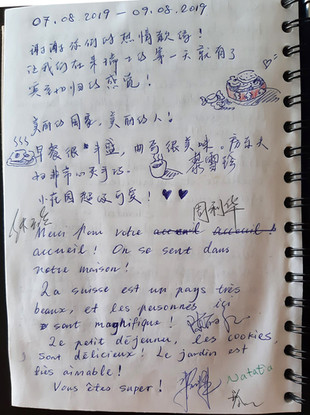 07.08.2019 — 09.08.2019
谢谢你们的热情款待！
让我们在来瑞士的第一天就有了
宾至如归的感觉！
美丽的国家，美丽的人！
早餐很丰盛，面包很美味。房东太
和
小花园超级可爱！
周利华
Merci pour votre accueil accueil!
accueil! On se sent dans
notre maison!
La suisse est un pays très
beaux, et les personnes içi
sont magnifique!
Le petit déjeuner, les cookies,
sont délicieux! Le jardin est
très aimable!
Vous êtes super!
Natalia